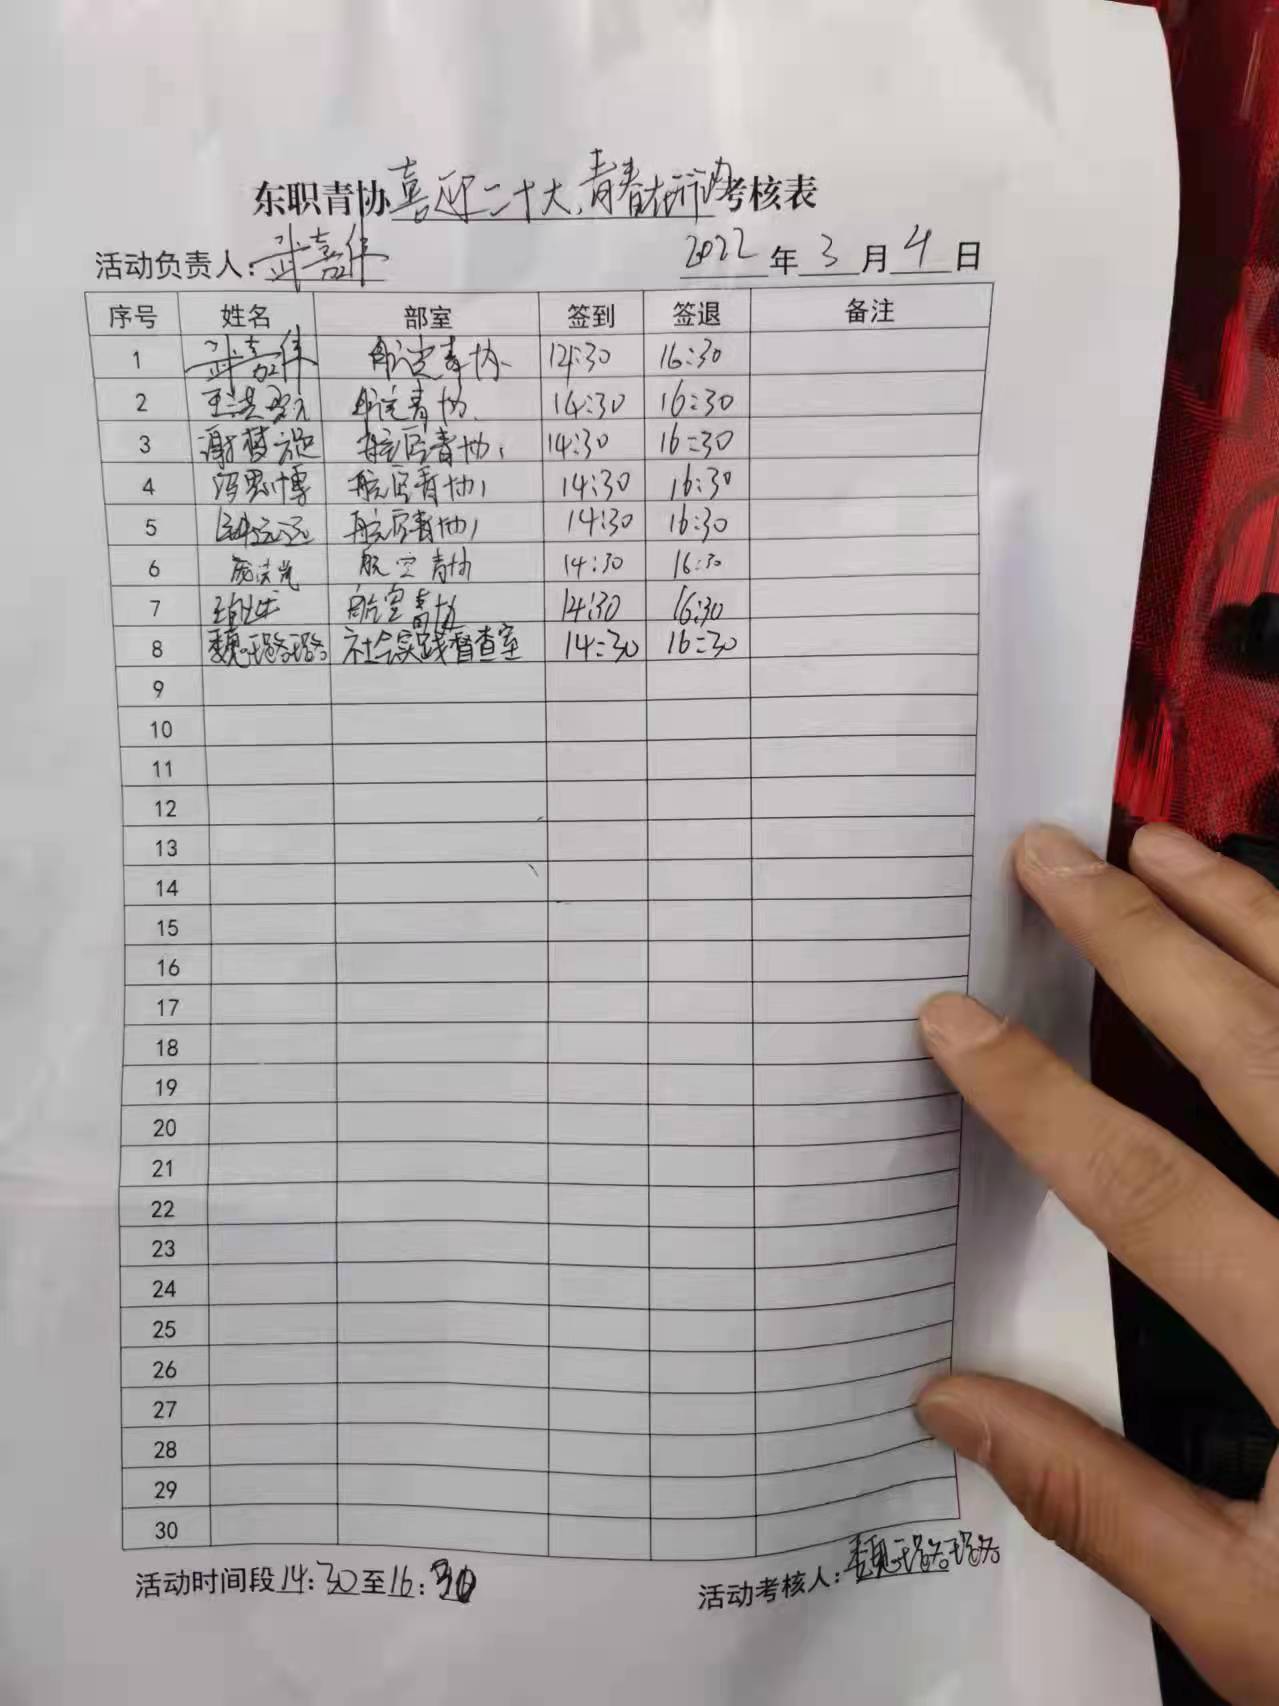 东职青协喜迎二十大,青春在行动考核表
活动负责人:武嘉伟 2022年3月4日
序号 姓名 部室 签到 签退 备注
1 武嘉伟 航空青协 14:30 16:30
2 航空青协 14:30 16:30
3 谢梦旎 航空青协 14:30 16:30
4 冯思博 航空青协 14:30 16:30
5 航空青协 14:30 16:30
6 航空青协 14:30 16:30
7 航空青协 14:30 16:30
8 魏璐璐 社会实践督查室 14:30 16:30
9
10
11
12
13
14
15
16
17
18
19
20
21
22
23
24
25
26
27
28
29
30
活动时间段14:30至16:30 活动考核人:魏璐璐